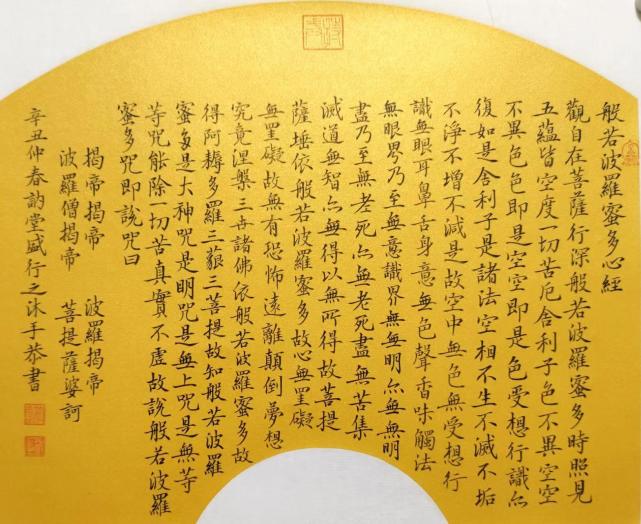 般若波羅蜜多心經
觀自在菩薩行深般若波羅蜜多時照見
五蘊皆空度一切苦厄舍利子色不異空空
不異色色即是空空即是色受想行識亦
復如是舍利子是諸法空相不生不滅不垢
不淨不增不減是故空中無色無受想行
識無眼耳鼻舌身意無色聲香味觸法
無眼界乃至無意識界無無明亦無無明
盡乃至無老死亦無老死盡無苦集
滅道無智亦無得以無所得故菩提
薩埵依般若波羅蜜多故心無罣礙
無罣礙故無有恐怖遠離顛倒夢想
究竟涅槃三世諸佛依般若波羅蜜多故
得阿耨多羅三藐三菩提故知般若波羅
蜜多是大神咒是明咒是無上咒是無等
等咒能除一切苦真實不虛故說般若波羅
蜜多咒即說咒曰
揭帝揭帝 波羅揭帝
波羅僧揭帝 菩提薩婆訶
辛丑仲春訥堂盛行之沐手恭書